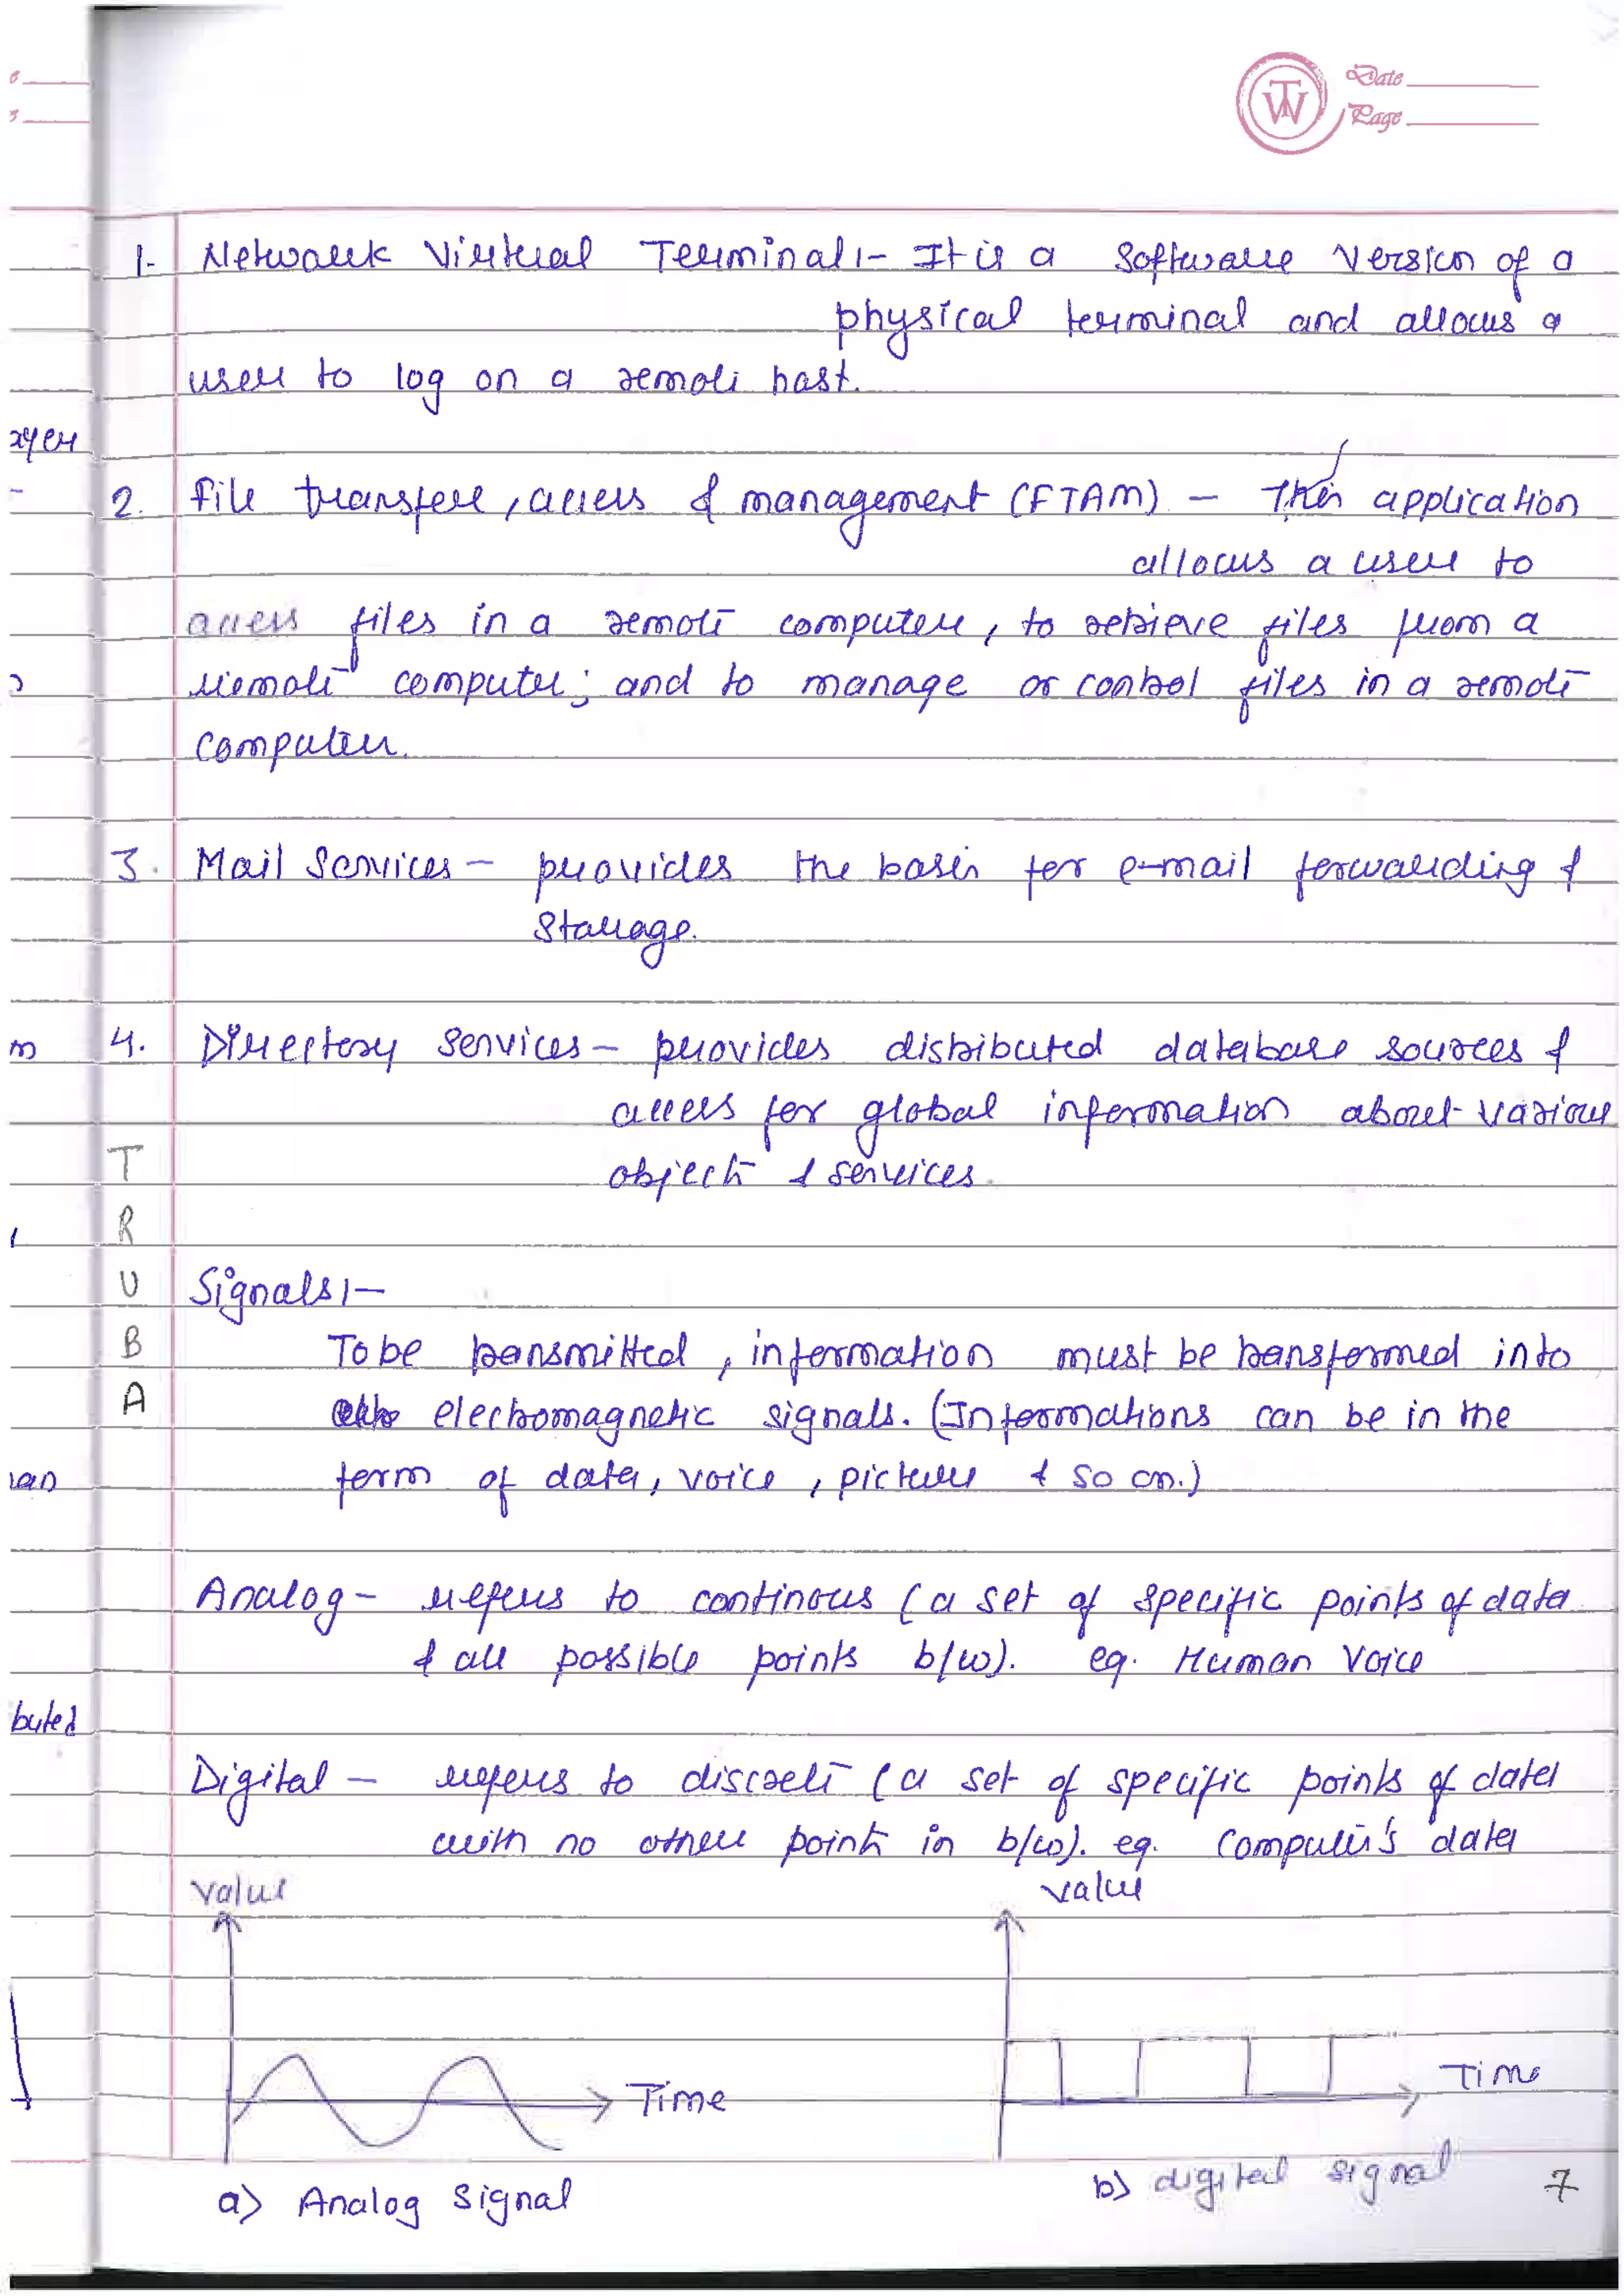 Date
Page
1- Network Virtual Terminal :- It is a Software Version of a
physical terminal and allows a
user to log on a remote host.
2. File transfer, access & management (FTAM) - This application
allows a user to
access files in a remote computer, to retrieve files from a
remote computer; and to manage or control files in a remote
computer.
3. Mail Services - provides the basis for e-mail forwarding &
Storage.
4. Directory Services - provides distributed database sources &
access for global information about various
objects & services.
T
R
U
B
A
Signals :-
To be transmitted, information must be transformed into
electromagnetic signals. (Informations can be in the
form of data, voice, picture & so on.)
Analog - refers to continous (a set of specific points of data
& all possible points b/w). eg. Human Voice
Digital - refers to discrete (a set of specific points of data
with no other points in b/w). eg. Computer's data
Value
Time
a) Analog Signal
value
Time
b) digital signal
7